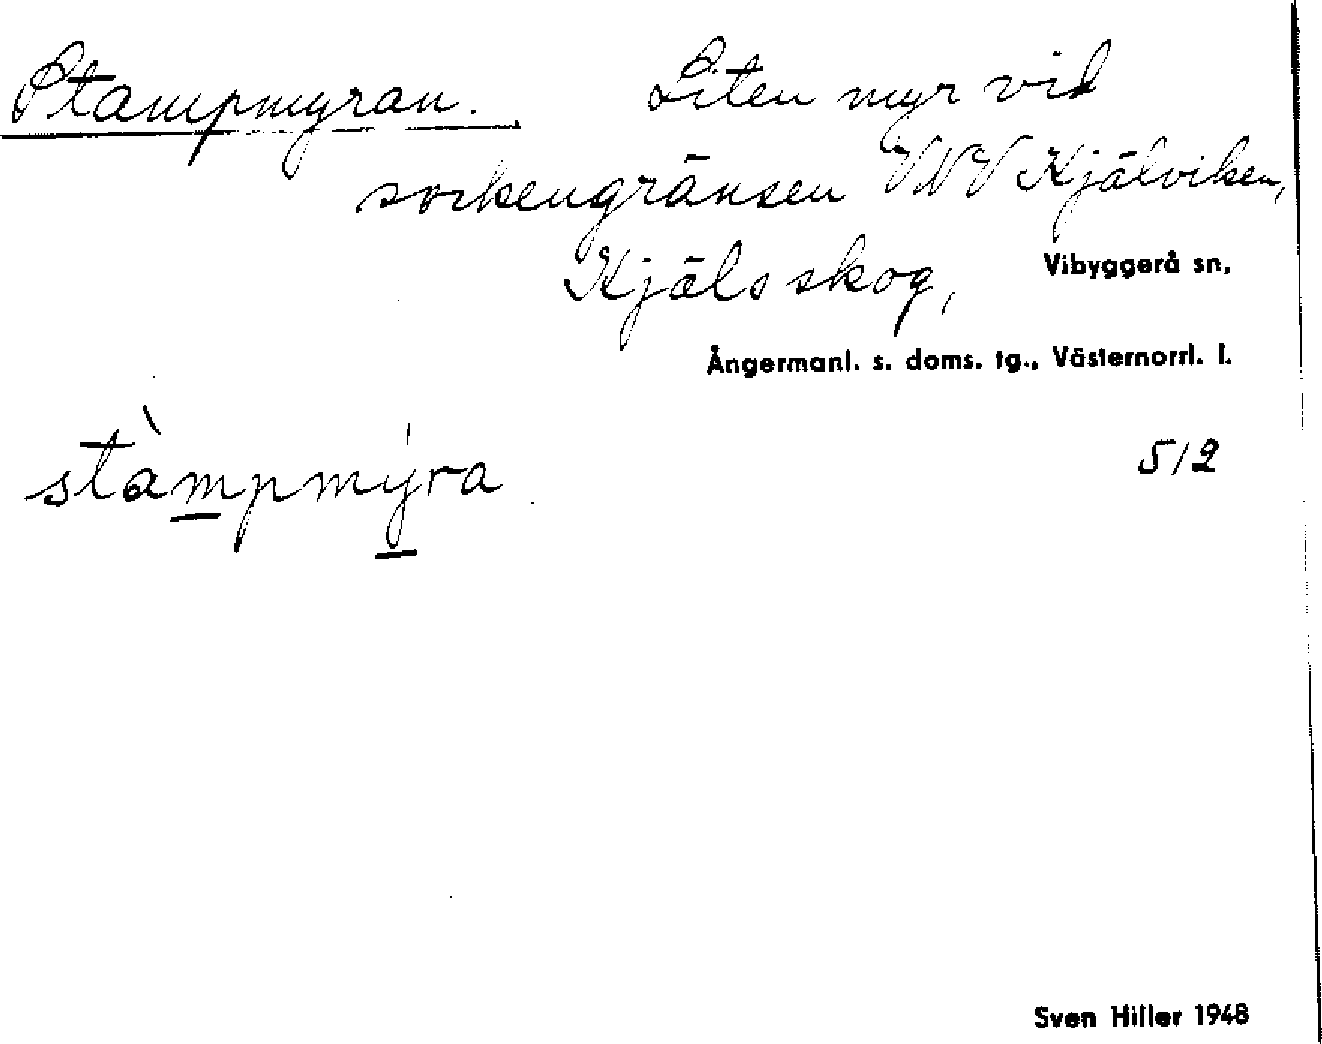 Stampmyran. Liten myr vid
sockengränsen VNV Kjälviken,
Kjäls skog, Vibyggerå sn,
Ångermanl. s. doms. tg., Västernorrl. l.
stàmpmýra 5/2
Sven Hiller 1948